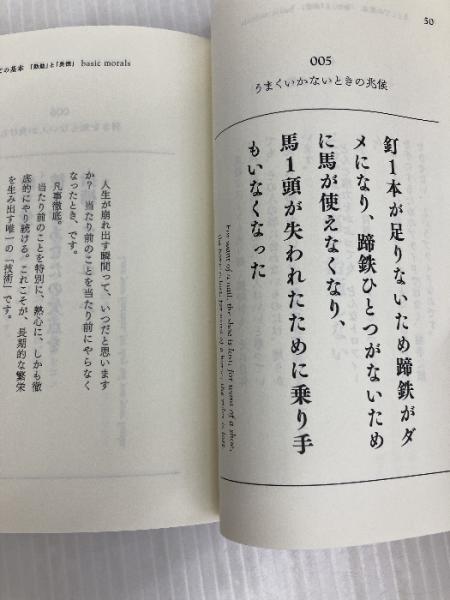 50
005
うまくいかないときの兆候
釘1本が足りないため蹄鉄がダ
メになり、蹄鉄ひとつがないため
に馬が使えなくなり、
馬1頭が失われたために乗り手
もいなくなった
For want of a nail, the shoe is lost; for want of a shoe,
the horse is lost; for want of a horse, the rider is lost.
の基本 「勤勉」と「美徳」 basic morals
人生が崩れ出す瞬間って、いつだと思います
か? 当たり前のことを当たり前にやらなく
なったとき、です。
凡事徹底。
当たり前のことを特別に、熱心に、しかも徹
底的にやり続ける。これこそが、長期的な繁栄
を生み出す唯一の「技術」です。
006